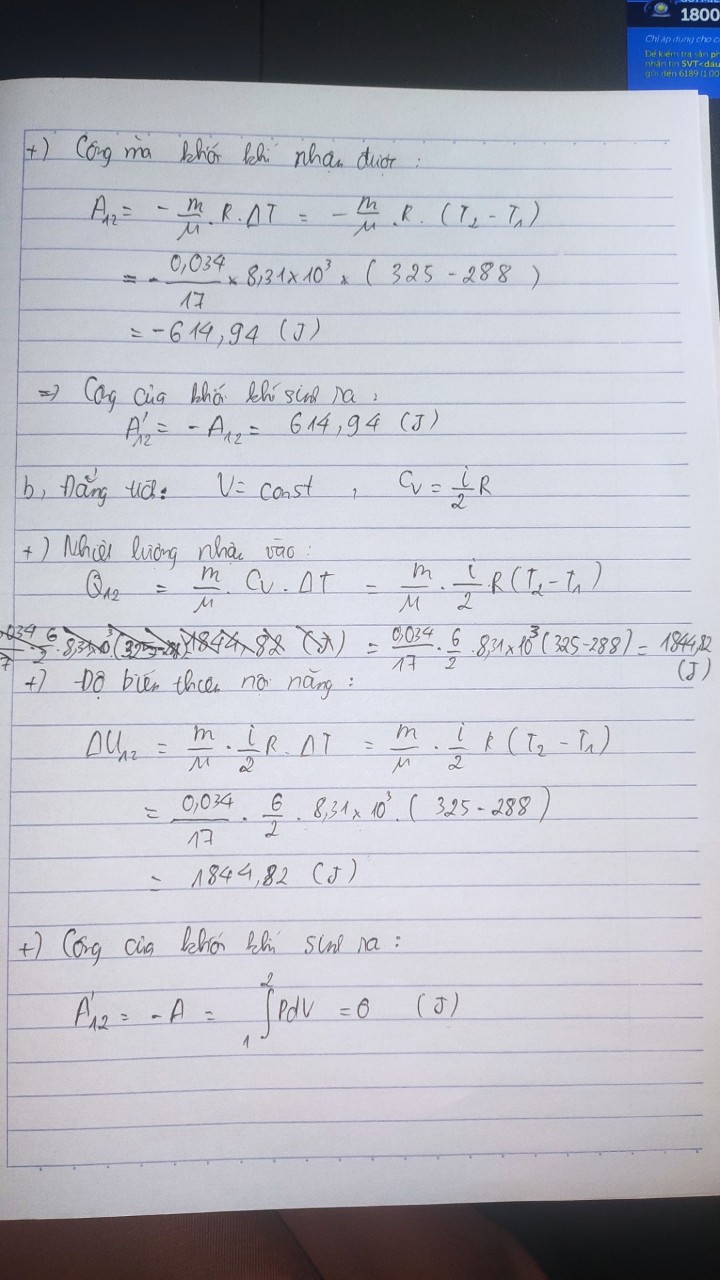 1800
Chỉ áp dụng cho c
Để kiểm tra sản ph
nhắn tin SVT<dấu
gửi đến 6189 (1.00
+) Công mà khối khí nhận được :
A₁₂ = - m/μ . R . ΔT = - m/μ . R . (T₂ - T₁)
= - 0,034/17 × 8,31×10³ × ( 325 - 288 )
= -614,94 (J)
=> Công của khối khí sinh ra :
A'₁₂ = - A₁₂ = 614,94 (J)
b, Đẳng tích: V = const , Cv = i/2 R
+) Nhiệt lượng nhận vào :
Q₁₂ = m/μ . Cv . ΔT = m/μ . i/2 . R (T₂ - T₁)
= 0,034/17 . 6/2 . 8,31×10³ (325-288) = 1844,82 (J)
+) Độ biến thiên nội năng :
ΔU₁₂ = m/μ . i/2 R . ΔT = m/μ . i/2 R (T₂ - T₁)
= 0,034/17 . 6/2 . 8,31×10³ . ( 325 - 288 )
= 1844,82 (J)
+) Công của khối khí sinh ra :
A'₁₂ = - A = ∫₁² PdV = 0 (J)